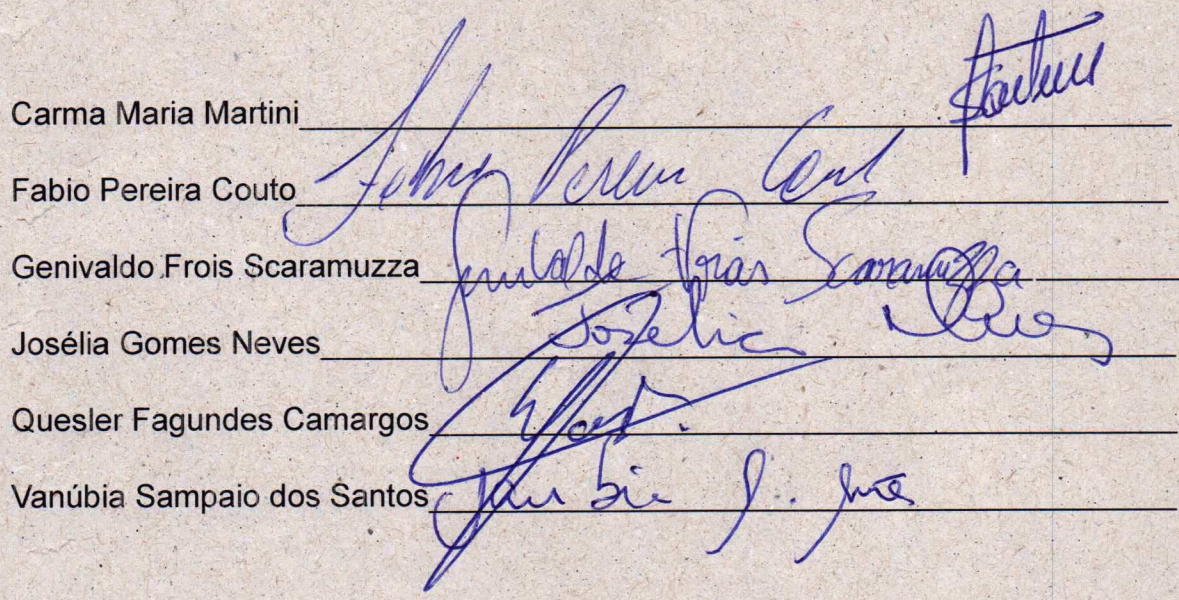 Carma Maria Martini
Fabio Pereira Couto Fabio Pereira Cout
Genivaldo Frois Scaramuzza Genivaldo Frois Scaramuzza
Josélia Gomes Neves Josélia Neves
Quesler Fagundes Camargos
Vanúbia Sampaio dos Santos